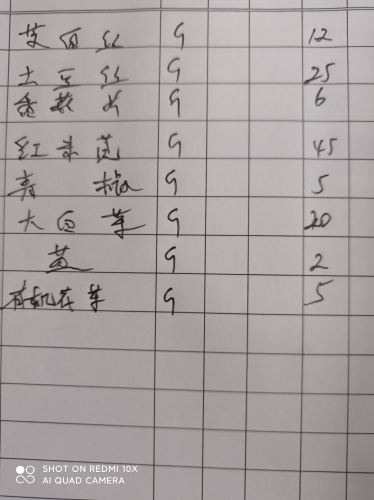 茭白丝 G 12
土豆丝 G 25
香菇片 G 6
红菜苔 G 45
青椒 G 5
大白菜 G 20
G 2
有机花菜 G 5
SHOT ON REDMI 10X
AI QUAD CAMERA